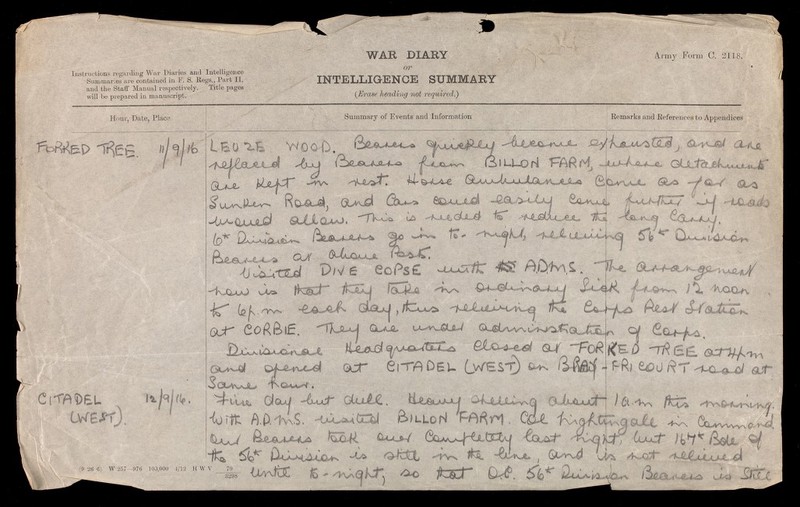 WAR DIARY
Army Form C. 2118.
or
Instructions regarding War Diaries and Intelligence
Summaries are contained in F. S. Regs., Part II.
and the Staff Manual respectively. Title pages
will be prepared in manuscript.
INTELLIGENCE SUMMARY
(Erase heading not required.)
Hour, Date, Place
Summary of Events and Information
Remarks and References to Appendices
FORKED TREE. 11/9/16
LEUZE WOOD. Bearers quickly become exhausted, and are
replaced by Bearers from BILLON FARM, where detachments
are kept in rest. Horse Ambulances come as far as
Sunken Road, and Cars could easily come further if roads
would allow. This is needed to reduce the long Carry.
6th Division Bearers go in to-night, relieving 56th Division
Bearers at above Posts.
Visited DIVE COPSE with ADMS. The arrangement
now is that they take in ordinary Sick from 12 noon
to 6 p.m each day, thus relieving the Corps Rest Station
at CORBIE. They are under administration of Corps.
Divisional Headquarters closed at FORKED TREE at 4 pm
and opened at CITADEL (WEST) on BRAY-FRICOURT road at
same hour.
CITADEL 12/9/16.
(WEST).
Fine day but dull. Heavy shelling about 1 a.m this morning.
With A.D.M.S. visited BILLON FARM. Col. Nightingale in Command.
Our Bearers took over completely last night, but 167th Bde of
the 56th Division is still in the line, and is not relieved
until to-night, so that O.C. 56th Division Bearers is still